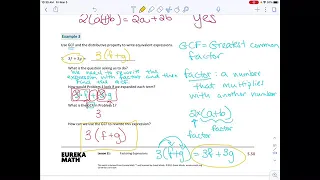 2(a+b) = 2a + 2b yes
Example 3
Use GCF and the distributive property to write equivalent expressions.
3f + 3g
3(f+g)
What is the question asking us to do?
We need to rewrite the
expression with factors and then
find the GCF.
How would Problem 1 look if we expanded each term?
3·f + 3·g
3
How can we use the GCF to rewrite this expression?
3(f+g)
GCF = Greatest common
factor
factor: a number
that multiplies
with another number
2x(a+b)
factor
factor
3(f+g) = 3f + 3g
EUREKA
MATH
Lesson 11: Factoring Expressions